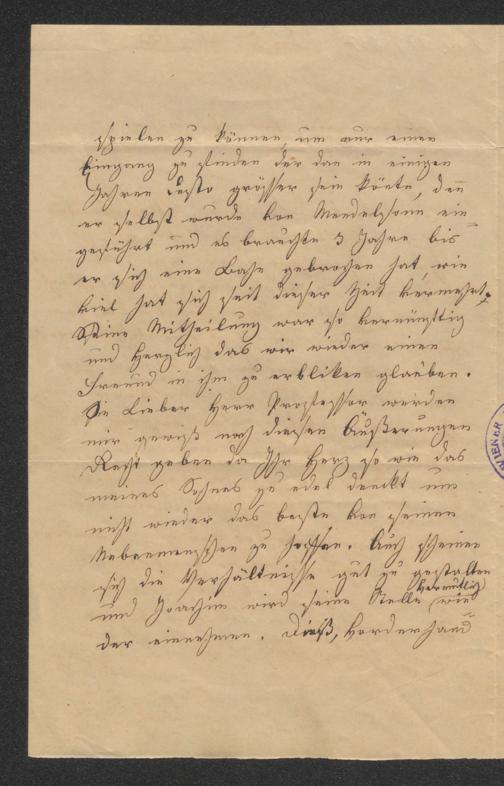 spielen zu können, um nur einen
Eingang zu finden der dan in einigen
Jahren desto grösser sein könte, den̄
er selbst wurde von Mendelsonn ein
geführt und es brauchte 3 Jahre bis
er sich eine Bahn gebrochen hat, wie
viel hat sich seit dieser Zeit vermehrt.
Seine Mittheilung war so vernünftig
und Herzlich das wir wieder einen
Freund in ihm zu erbliken glauben.
Sie Lieber Herr Professor werden
mir gewiß nach diesen Äußerungen
Recht geben da Ihr Herz so wie das
meines Sohnes zu edel denckt um
nicht wieder das beste von seinen
Nebenmenschen zu hoffen. Auch scheinen
sich die Verhältnisse gut zu gestalten
und Joachim wird seine Stelle vermutlich
wieder einnehmen. Dieß, vorderhand
WIENER